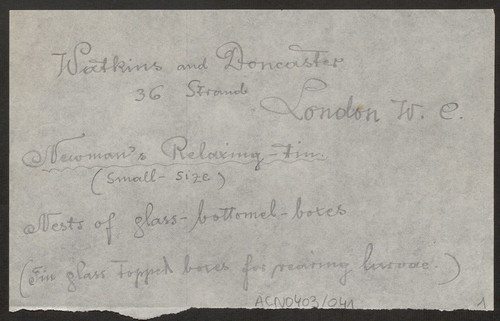 Watkins and Doncaster
36 Strand
London W. C.
Newman's Relaxing-tin
(Small-size)
Nests of glass-bottomel-boxes
(Tin glass topped boxes for rearing larvae.)
ACN0403/041
1